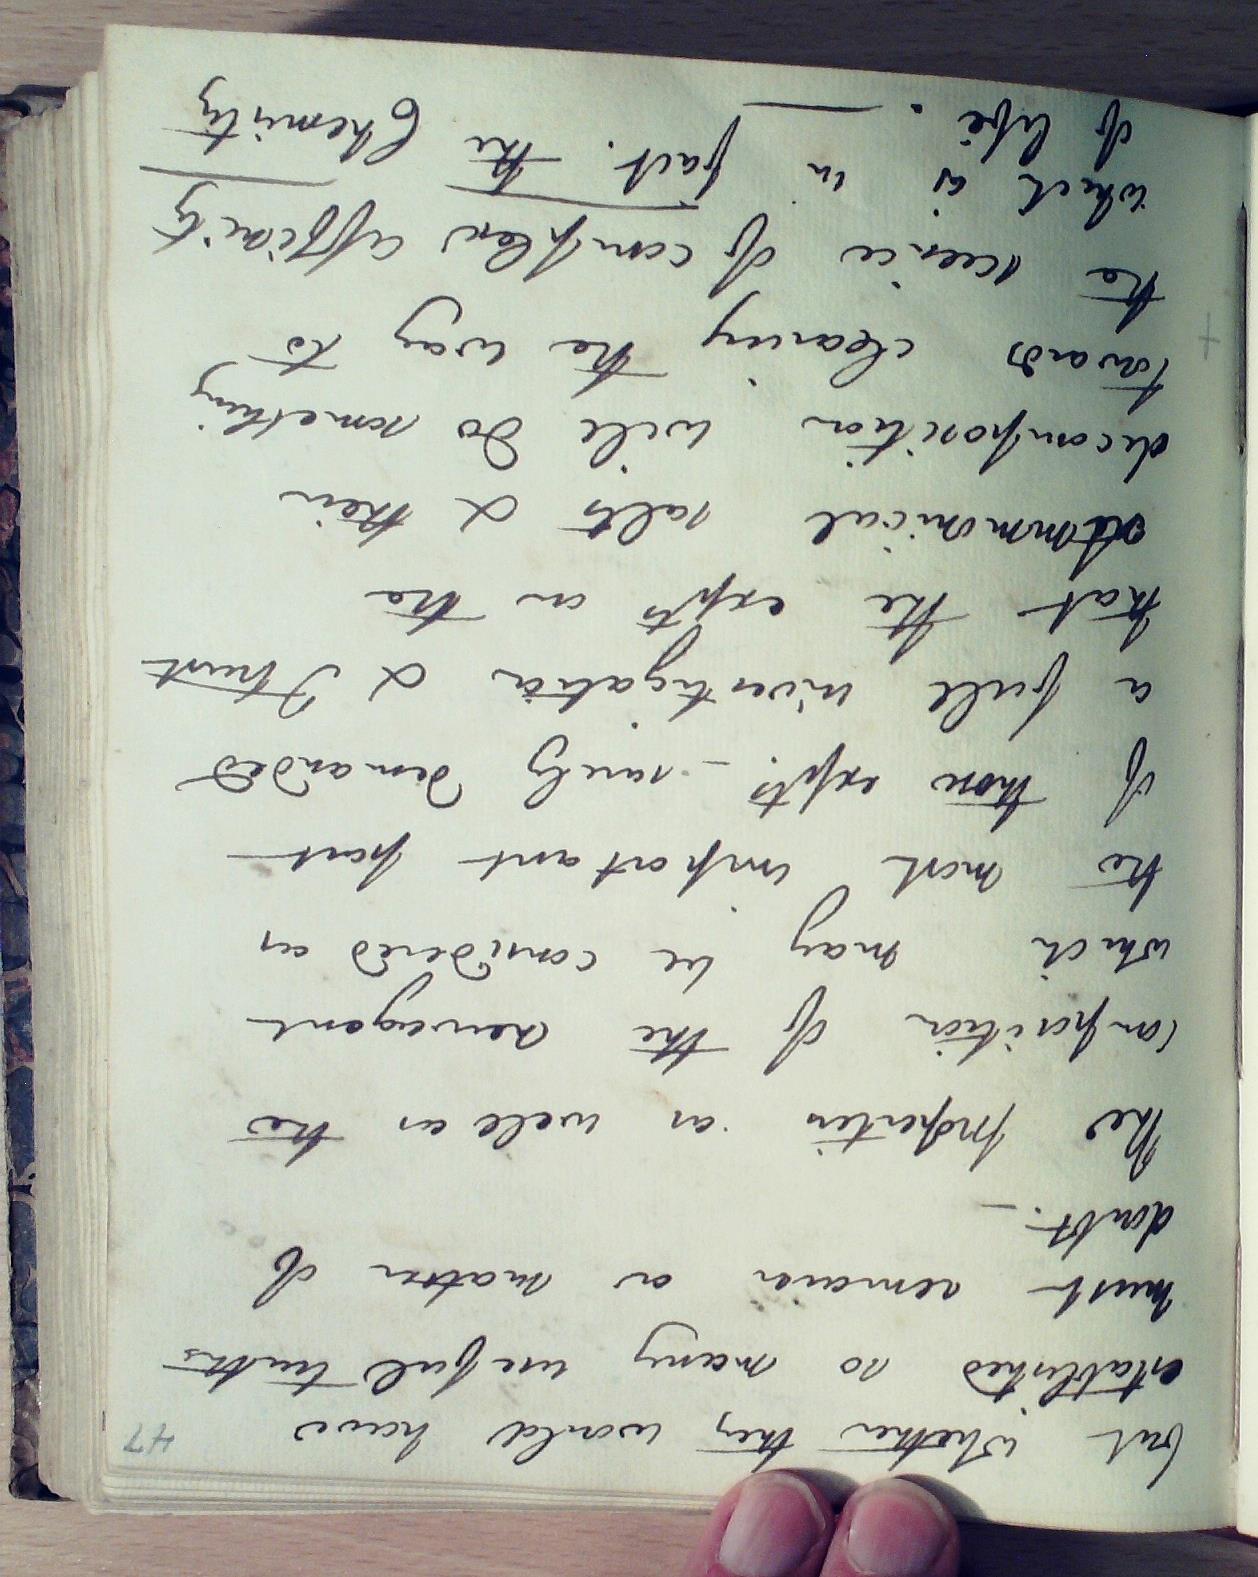 47
but whether they would have
established so many useful truths
must remain a matter of
doubt. –
The properties as well as the
composition of the aeriform
which may be considered as
the most important part
of those expts. – surely demanded
a full investigation & I trust
that the expts on the
ammoniacal salts & their
decomposition will do something
towards clearing the way to
the science of complex affinity
which is in fact. the Chemistry
of life. —